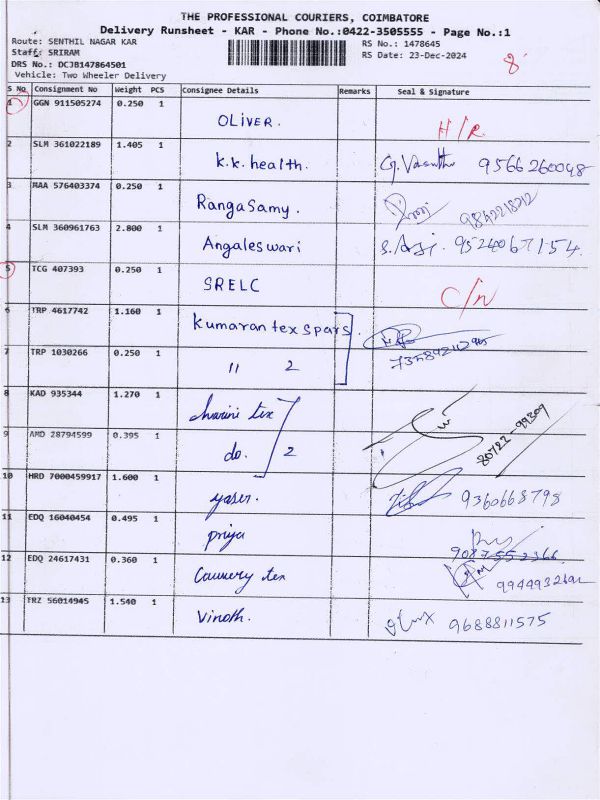 THE PROFESSIONAL COURIERS, COIMBATORE
Delivery Runsheet - KAR - Phone No.:0422-3505555 - Page No.:1
Route: SENTHIL NAGAR KAR RS No.: 1478645
Staff: SRIRAM RS Date: 23-Dec-2024 8
DRS No.: DCJB147864501
Vehicle: Two Wheeler Delivery
S No Consignment No Weight PCS Consignee Details Remarks Seal & Signature
1 GGN 911505274 0.250 1 OLIVER. H/R
2 SLM 361022189 1.405 1 K.K. health. G. Vasanth 9566260048
3 MAA 576403374 0.250 1 Rangasamy. 9842218212
4 SLM 360961763 2.800 1 Angaleswari S. Anji. 9524067154.
5 TCG 407393 0.250 1 SRELC C/N
6 TRP 4617742 1.160 1 Kumaran tex spars
7 TRP 1030266 0.250 1 11 2
8 KAD 935344 1.270 1 harini tex
9 AMD 28794599 0.395 1 do. 2 80722-99309
10 HRD 7000459917 1.600 1 yaser. 9360668798
11 EDQ 16040454 0.495 1 priya 9087552366
12 EDQ 24617431 0.360 1 Cauvery tex
13 TRZ 56014945 1.540 1 Vinoth. 9688811575